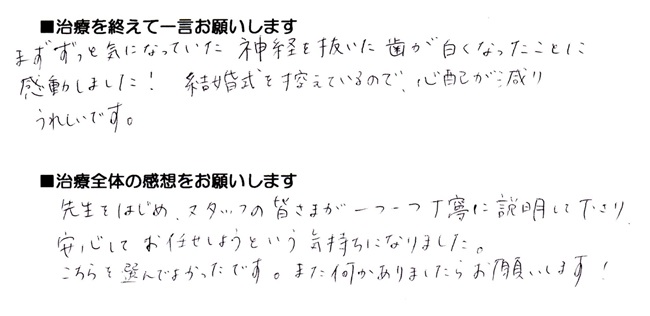 ■治療を終えて一言お願いします
まずずっと気になっていた神経を抜いた歯が白くなったことに
感動しました！ 結婚式を控えているので、心配が減り
うれしいです。
■治療全体の感想をお願いします
先生をはじめ、スタッフの皆さまが一つ一つ丁寧に説明して下さり
安心してお任せしようという気持ちになりました。
こちらを選んでよかったです。また何かありましたらお願いします！